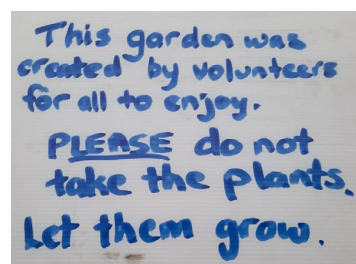 This garden was
created by volunteers
for all to enjoy.
PLEASE do not
take the plants.
Let them grow.